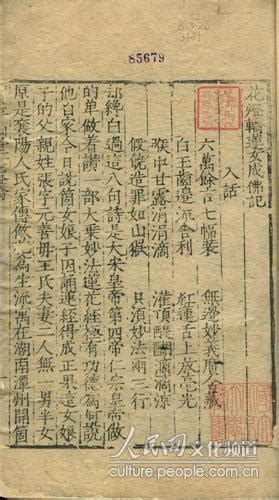 85679
花燈轎蓮女成佛記
入話
六萬餘言七幅裝 無邊妙義廣含藏
白玉齒邊流舍利 紅蓮舌上放毫光
喉中甘露涓涓滴 灌頂醍醐滴滴涼
假饒造罪如山嶽 只須妙法兩三行
却纔白過這八句詩是大宋皇帝第四帝仁宗皇帝做
的單做着讚一部大乘妙法蓮花經極有功德為何說
他自家今日說箇女娘子因誦蓮經得成正果這女娘
子的父親姓張子元善母王氏夫妻二人無一男半女
原是襄陽人氏家傳做花為生流寓在湖南潭州開箇
人民网 文化频道
culture.people.com.cn